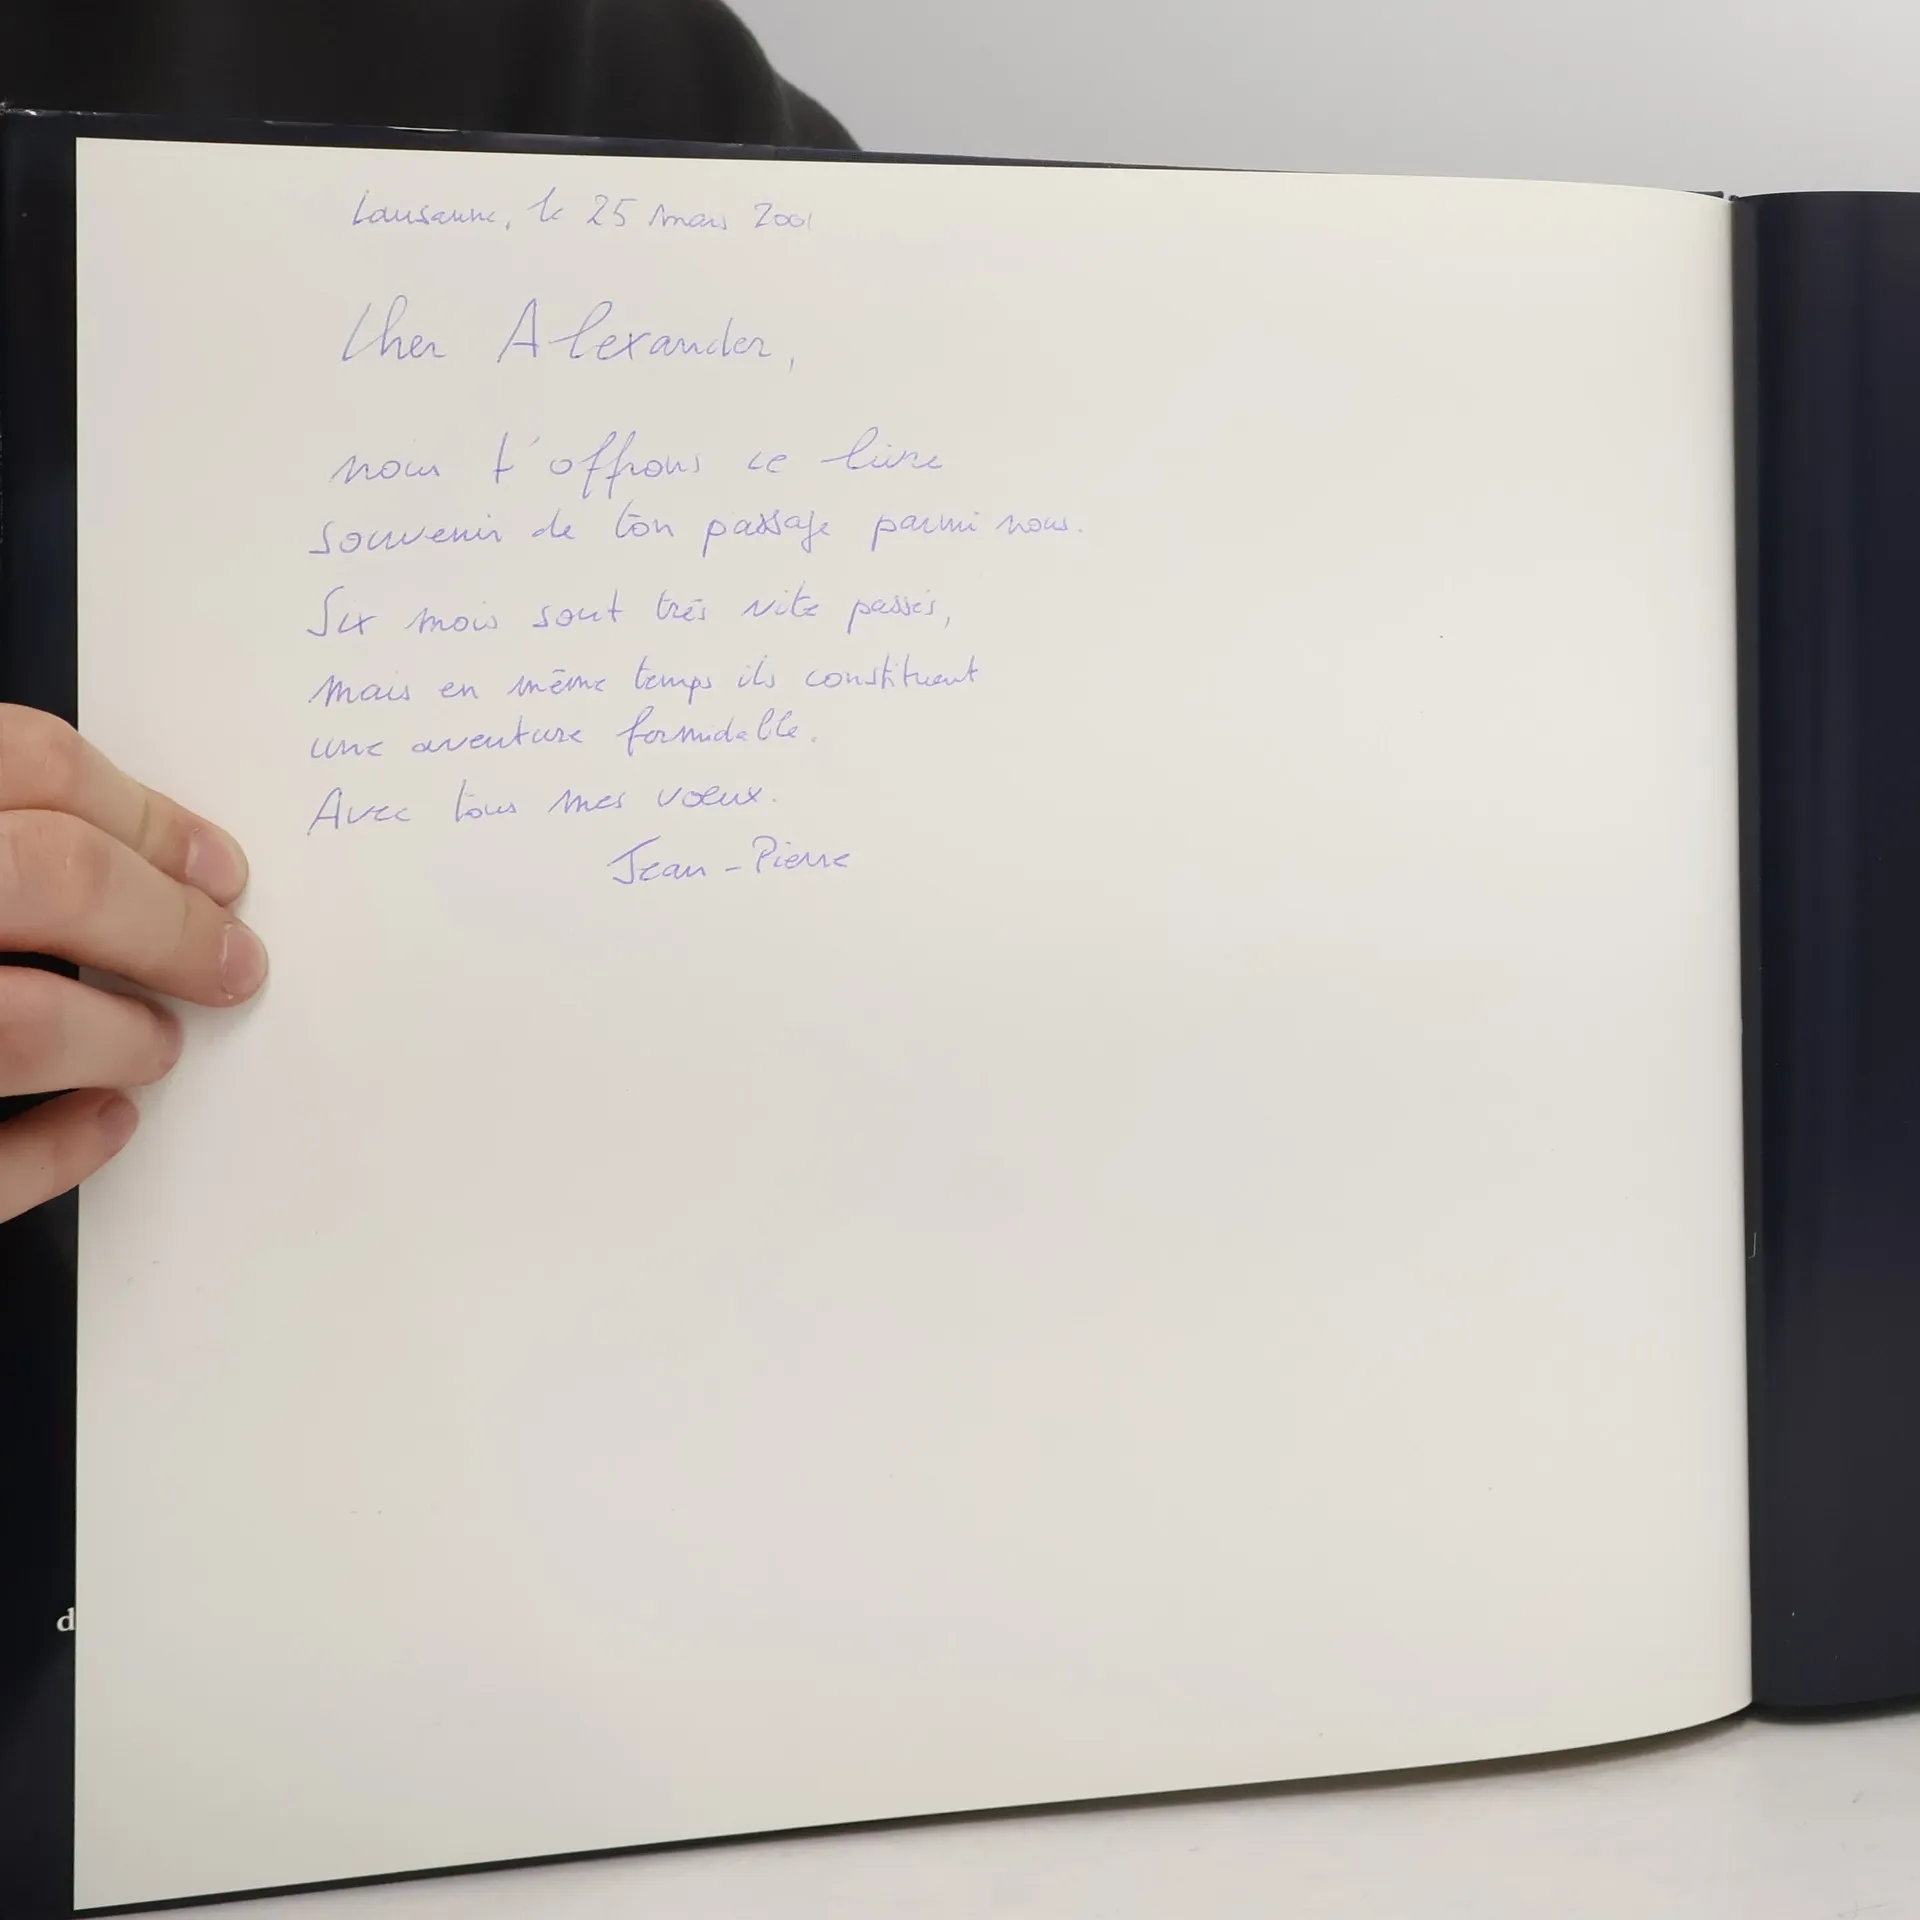 Lausanne, le 25 mars 2001
Cher Alexander,
nous t'offrons ce livre
souvenir de ton passage parmi nous.
Six mois sont très vite passés,
mais en même temps ils constituent
une aventure formidable.
Avec tous mes voeux.
Jean-Pierre
d